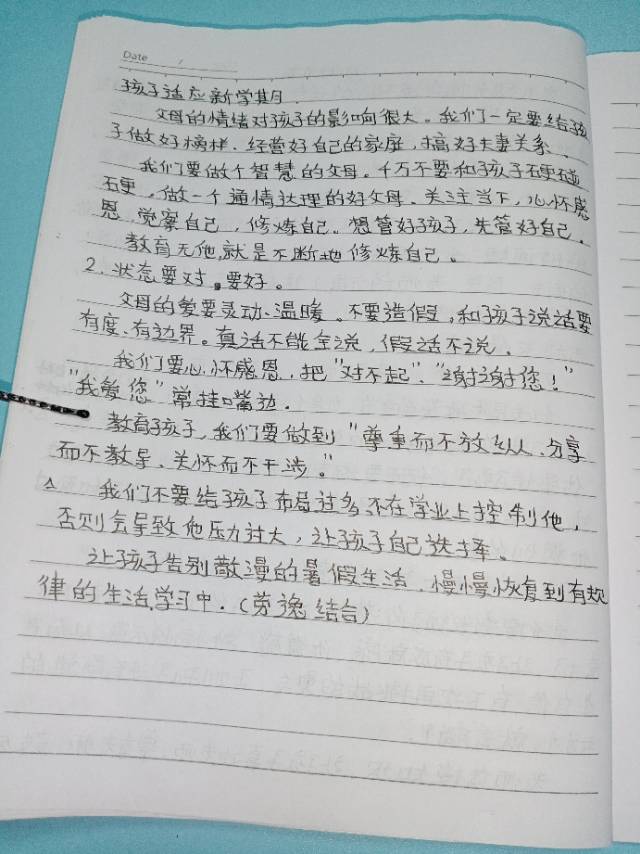 Date /
孩子适应新学期.
父母的情绪对孩子的影响很大。我们一定要给孩
子做好榜样.经营好自己的家庭,搞好夫妻关系。
我们要做个智慧的父母。千万不要和孩子硬碰
硬,做一个通情达理的好父母.关注当下,心怀感
恩.觉察自己,修炼自己.想管好孩子,先管好自己。
教育无他,就是不断地修炼自己。
2.状态要对,要好。
父母的爱要灵动、温暖.不要造假,和孩子说话要
有度、有边界。真话不能全说,假话不说。
我们要心怀感恩,把"对不起"、"谢谢您!"
"我爱您"常挂嘴边.
教育孩子,我们要做到"尊重而不放纵、分享
而不教导、关怀而不干涉。"
△ 我们不要给孩子布局过多,不在学业上控制他,
否则会导致他压力过大,让孩子自己选择。
让孩子告别散漫的暑假生活,慢慢恢复到有规
律的生活,学习中.(劳逸结合)